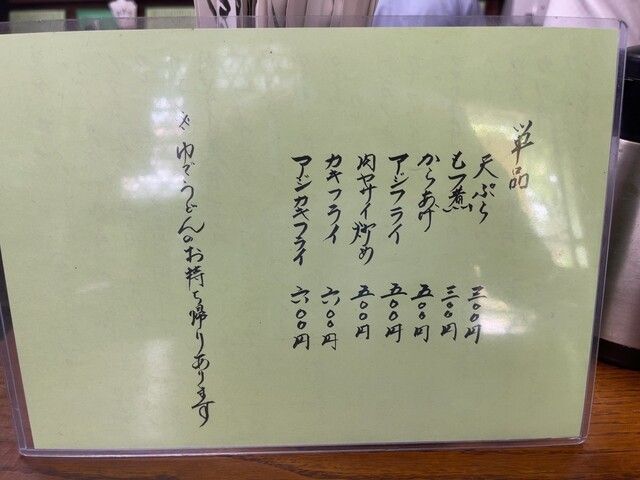 単品
天ぷら 三〇〇円
もつ煮 三〇〇円
からあげ 五〇〇円
アジフライ 五〇〇円
肉ヤサイ炒め 五〇〇円
カキフライ 六〇〇円
アジカキフライ 六〇〇円
ゆでうどんのお持ち帰りあります